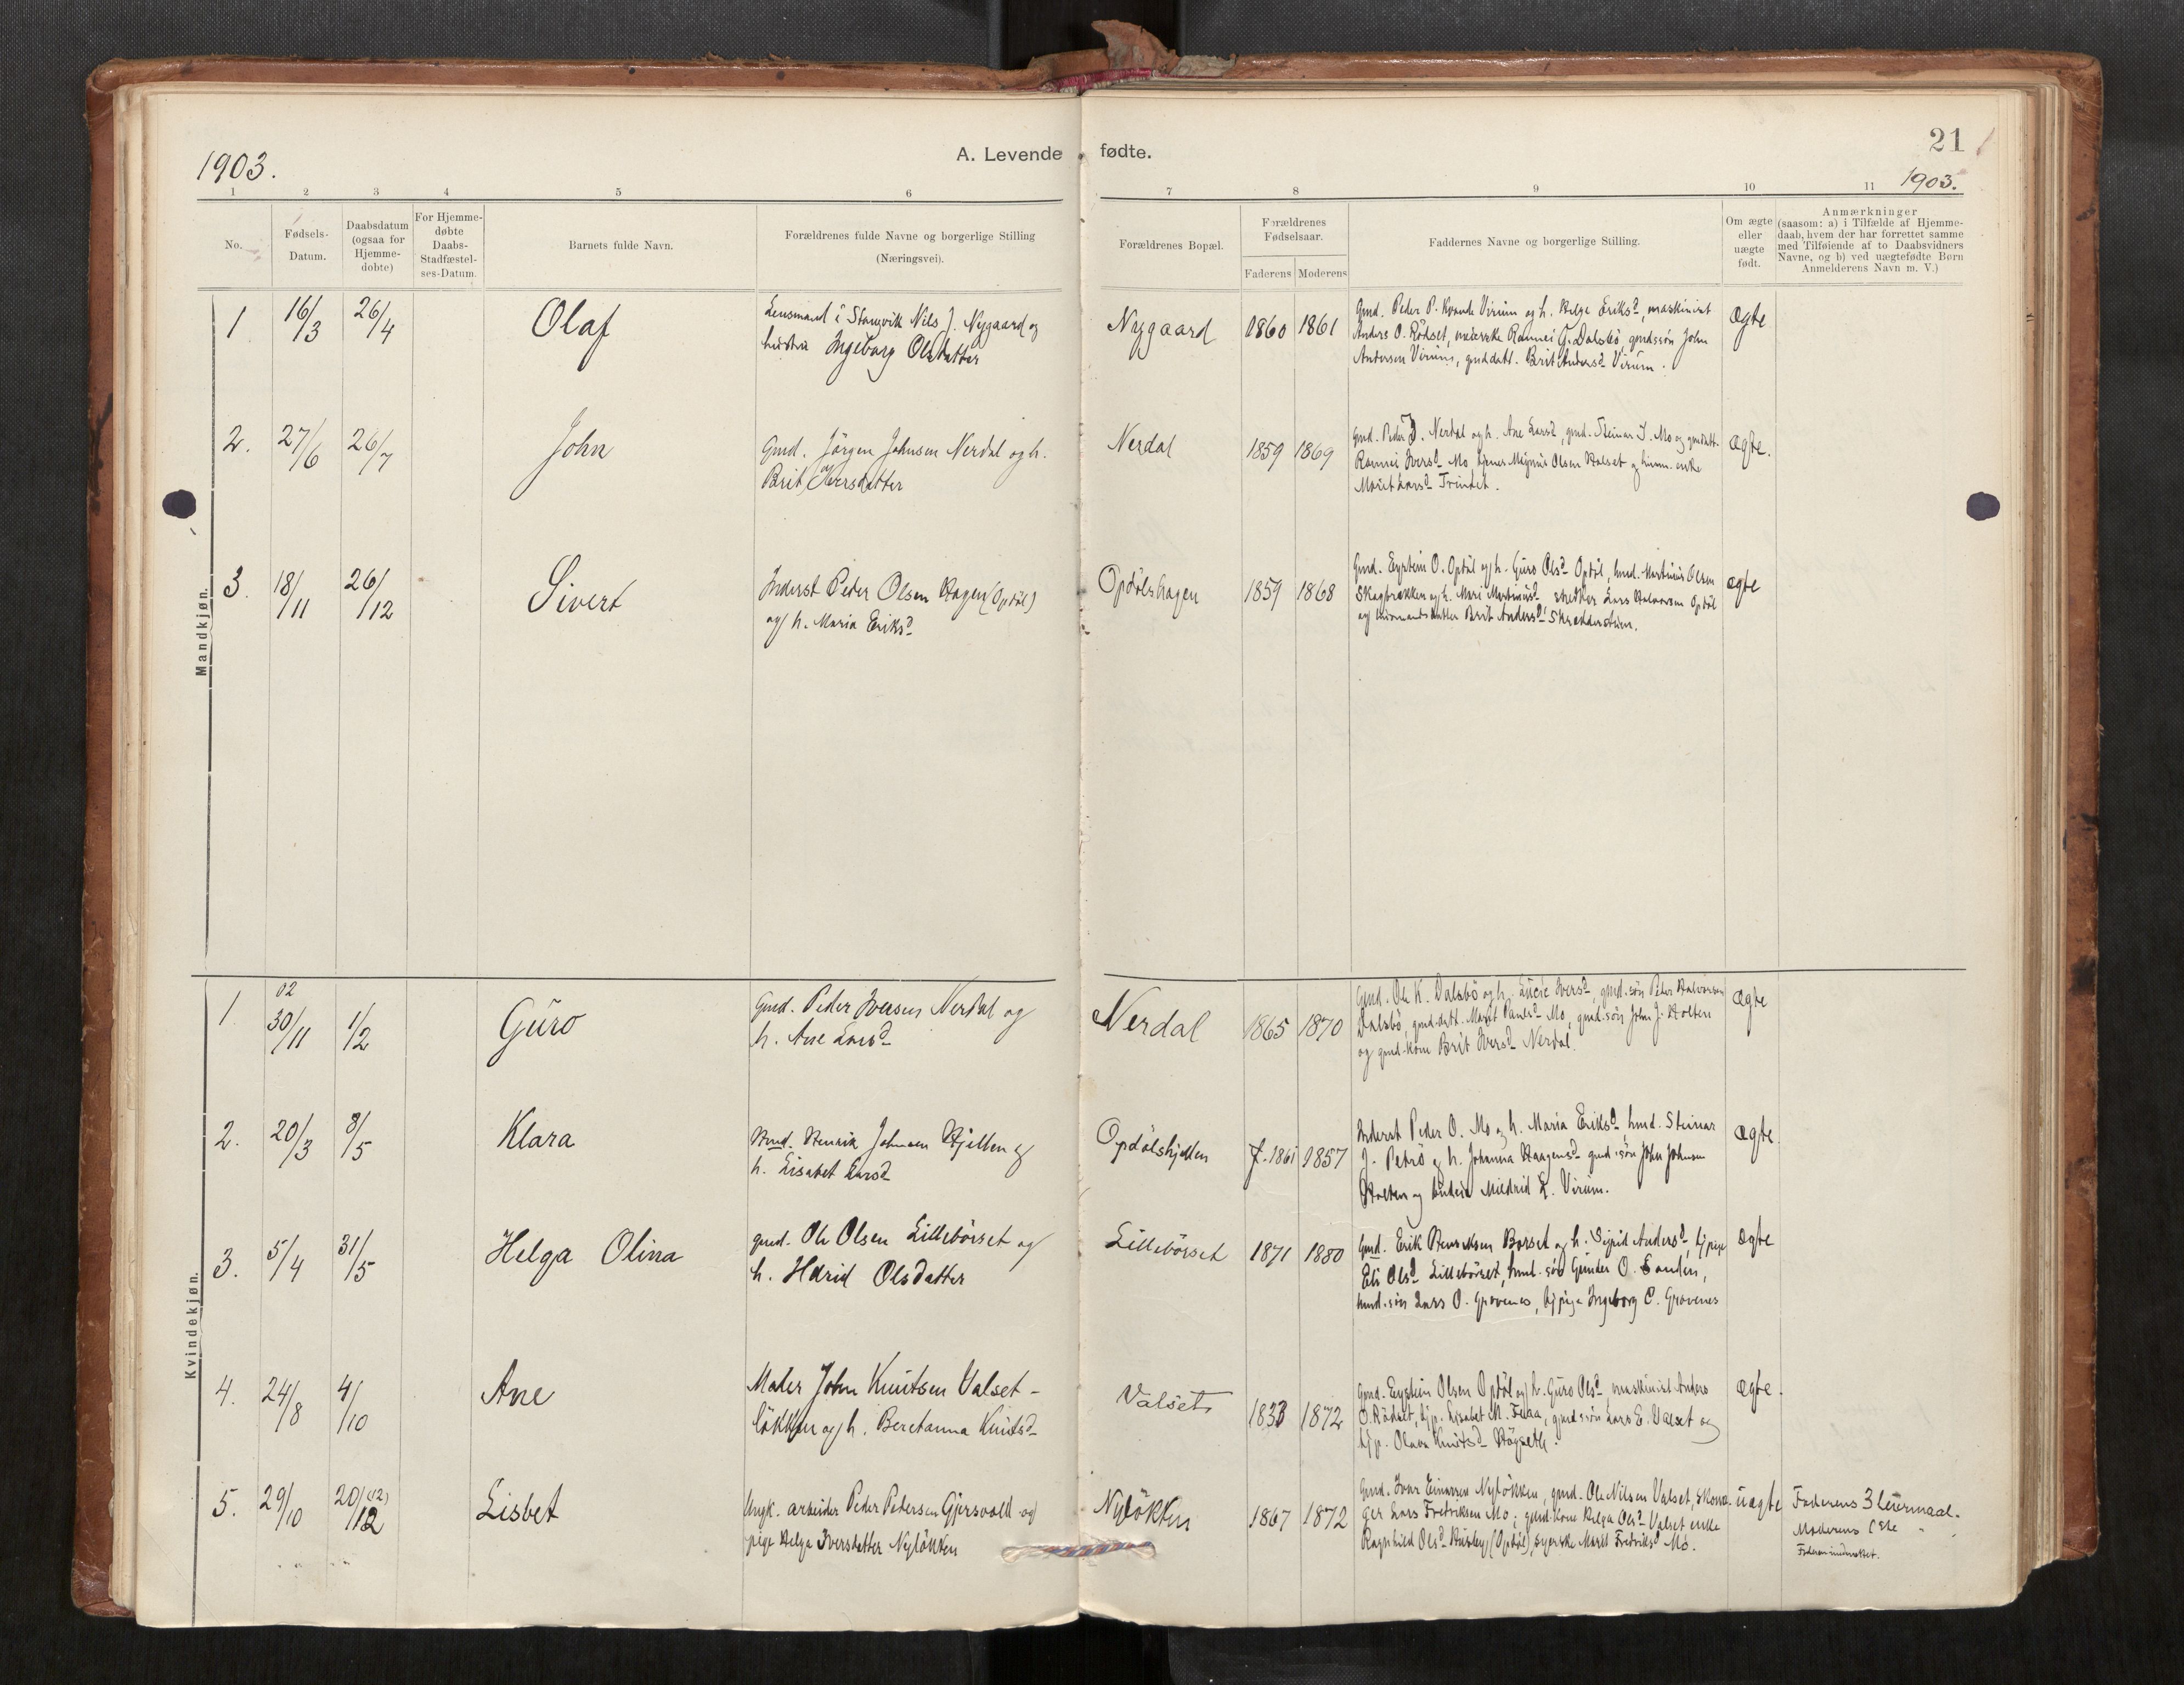 1903.
A. Levende fødte.
21
1903.
1 2 3 4 5 6 7 8 9 10 11
No.
Fødsels-
Datum.
Daabsdatum
(ogsaa for
Hjemme-
døbte)
For Hjemme-
døbte
Daabs-
Stadfæstel-
ses-Datum.
Barnets fulde Navn.
Forældrenes fulde Navne og borgerlige Stilling
(Næringsvei).
Forældrenes Bopæl.
Forældrenes
Fødselsaar.
Faderens Moderens
Faddernes Navne og borgerlige Stilling.
Om ægte
eller
uægte
født.
Anmærkninger
(saasom: a) i Tilfælde af Hjemme-
daab, hvem der har forrettet samme
med Tilføiende af to Daabsvidners
Navne, og b) ved uægtefødte Børn
Anmelderens Navn m. V.)
Mandkjøn.
1 16/3 26/4 Olaf
Lensmand i Stangvik Nils J. Nygaard og
hustru Ingeborg Olsdatter
Nygaard 1860 1861
Gmd. Peder P. Kvande Virum og h. Helge Eriksd, maskinist
Anders O. Rödset, meierske Rannei G. Dalsbö, gmdssön John
Andersen Virum, gmddatt. Brit Andersd Virum.
ægte
2. 27/6 26/7 John
Gmd. Jörgen Johnsen Nerdal og h.
Brit Iversdatter
Nerdal 1859 1869
Gmd. Peder J. Nerdal og h. Ane Larsd, gmd. Steinar I. Mo og gmdatt.
Rannei Iversd Mo, Magnus Olsen Halset og enke
Marit Larsd Trindet.
ægte.
3. 18/11 26/12 Sivert
Inderst Peder Olsen Hagen (Opdöl)
og h. Maria Eriksd
Opdölshagen 1859 1868
Gmd. Eystein O. Opdöl og h. Guro Olsd Opdöl, hmd. Martinus Olsen
Skagbrekken og h. Mari Martinusd Lars Halvorsen Opdöl
og Brit Andersd
ægte
Kvindekjøn.
1 02 30/11 1/2 Guro
Gmd. Peder Iversen Nerdal og
h. Ane Larsd
Nerdal 1865 1870
Gmd. Ole K. Dalsbö og h. Lucie Iversd, gmd.sön Peder Halvorsen
Dalsbö, gmd.datt. Marit Mo, gmd.sön John J. Holten
og gmd.kone Brit Iversd Nerdal.
ægte
2. 20/3 8/5 Klara
Hmd. Henrik Johnsen Hjellen og
h. Lisabet Larsd
Opdölshjellen f. 1861 1857
Inderst Peder O. Mo og h. Maria Eriksd, hmd. Steinar
J. Petrö og h. Johanna Haagensd gmd.sön John Johnsen
Holten og Mildrid L. Virum.
ægte
3. 5/4 31/5 Helga Olina
gmd. Ole Olsen Lillebörset og
h. Olsdatter
Lillebörset 1871 1880
Gmd. Erik Henriksen Börset og h. Sigrid Andersd, tj.pige
Eli Olsd Lillebörset, hmd.sön Gunder O. Sanden,
hmd.sön Lars O. Grövenes, tj.pige Ingeborg O. Grövenes
ægte
4. 24/8 4/10 Ane
Maler John Knutsen Valset-
lökken og h. Beretanna Knutsd
Valset 1833 1872
Gmd. Eystein Olsen Opdöl og h. Guro Olsd maskinist Anders
O. Rödset, tj.p. Lisabet M. gmdssön Lars E. Valset og
tj.p. Olava Knutsd
ægte.
5. 29/10 20/12 (12) Lisbet
Ungk. arbeider Peder Pedersen Gjersvold og
pige Helga Iversdatter Nylökken
Nylökken 1867 1872
Gmd. Ivar Einarsen Nylökken, gmd. Ole Nilsen Valset, skoma-
ger Lars Fredriksen Mo, gmd.kone Helga Olsd Valset enke
Ragnhild Olsd Husby (Opdöl), syerske Marit Fredriksd Mo.
uægte
Faderens 3 leiermaal.
Moderens 1ste "